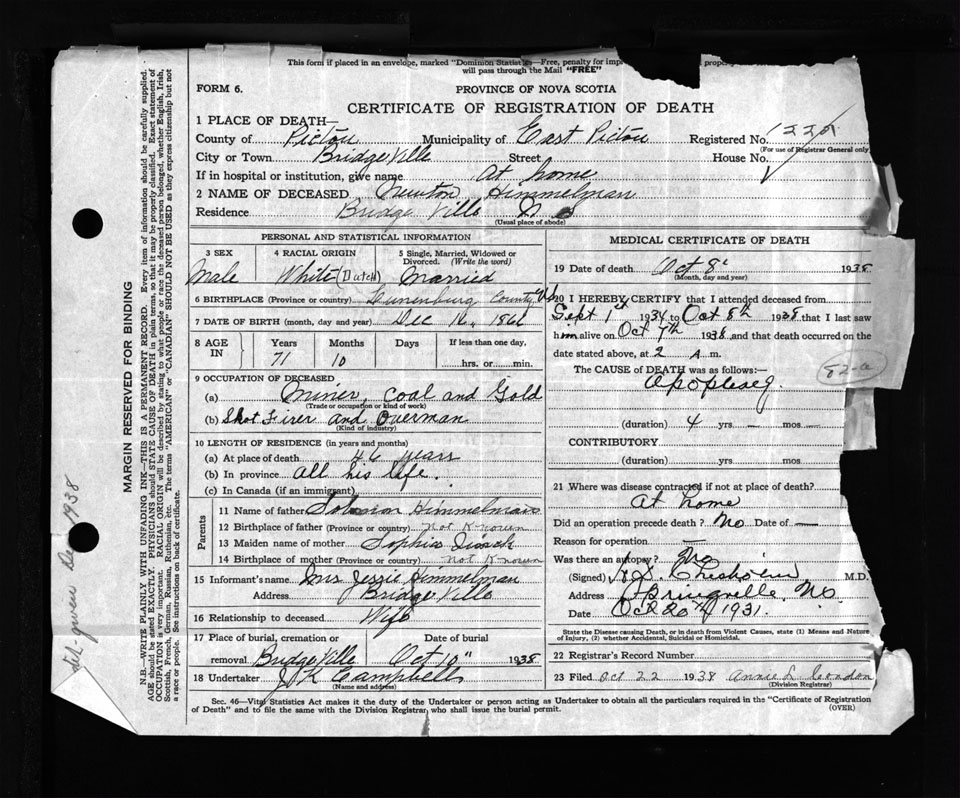 This form if placed in an envelope, marked "Dominion Statistics—Free, penalty for
will pass through the Mail "FREE"
FORM 6.
PROVINCE OF NOVA SCOTIA
CERTIFICATE OF REGISTRATION OF DEATH
1 PLACE OF DEATH—
County of Pictou Municipality of East Pictou Registered No.
(For use of Registrar General only
City or Town Bridgeville Street House No.
If in hospital or institution, give name At home
2 NAME OF DECEASED Newton Himmelman
Residence Bridge Ville N S
(Usual place of abode)
PERSONAL AND STATISTICAL INFORMATION
3 SEX Male
4 RACIAL ORIGIN White (Dutch)
5 Single, Married, Widowed or Divorced. (Write the word) Married
6 BIRTHPLACE (Province or country) Lunenburg County NS
7 DATE OF BIRTH (month, day and year) Dec 16, 1866
8 AGE IN Years 71 Months 10 Days If less than one day, hrs. or min.
9 OCCUPATION OF DECEASED
(a) Miner, Coal and Gold
(Trade or occupation or kind of work)
(b) Shot Firer and Overman
(Kind of industry)
10 LENGTH OF RESIDENCE (in years and months)
(a) At place of death 46 years
(b) In province all his life.
(c) In Canada (if an immigrant)
Parents
11 Name of father Solomon Himmelman
12 Birthplace of father (Province or country) Not Known
13 Maiden name of mother Sophia
14 Birthplace of mother (Province or country) not Known
15 Informant's name Mrs Jessie Himmelman
Address Bridge Ville
16 Relationship to deceased Wife
17 Place of burial, cremation or removal Bridge Ville
Date of burial Oct 10" 1938
18 Undertaker J K Campbell
(Name and address)
MEDICAL CERTIFICATE OF DEATH
19 Date of death Oct 8 1938
(Month, day and year)
20 I HEREBY CERTIFY that I attended deceased from
Sept 1st 1934 to Oct 8th 1938 that I last saw
him alive on Oct 7th 1938 and that death occurred on the
date stated above, at 2 A. m.
The CAUSE of DEATH was as follows:—
82-a
Apoplexy.
(duration) 4 yrs — mos —
CONTRIBUTORY
(duration) yrs. mos.
21 Where was disease contracted if not at place of death?
At home
Did an operation precede death? No Date of —
Reason for operation —
Was there an autopsy? No
(Signed) Chisholm M.D.
Address Springville NS
Date Oct 20th 1931.
State the Disease causing Death, or in death from Violent Causes, state (1) Means and Nature
of Injury, (2) whether Accidental, Suicidal or Homicidal.
22 Registrar's Record Number
23 Filed Oct 22 1938 Annie L Condon
(Division Registrar)
Sec. 46—Vital Statistics Act makes it the duty of the Undertaker or person acting as Undertaker to obtain all the particulars required in the "Certificate of Registration
of Death" and to file the same with the Division Registrar who shall issue the burial permit.
(OVER)
MARGIN RESERVED FOR BINDING
N.B.—WRITE PLAINLY WITH UNFADING INK—THIS IS A PERMANENT RECORD. Every item of information should be carefully supplied.
AGE should be stated EXACTLY. PHYSICIANS should STATE CAUSE OF DEATH in plain terms, so that it may be properly classified. Exact statement of
OCCUPATION is very important. RACIAL ORIGIN will be described by stating to what people or race the deceased person belonged, whether English, Irish,
Scottish, French, German, Russian, Ruthenian, etc. The terms "AMERICAN" or "CANADIAN" SHOULD NOT BE USED as they express citizenship but not
a race or people. See instructions on back of certificate.
1938